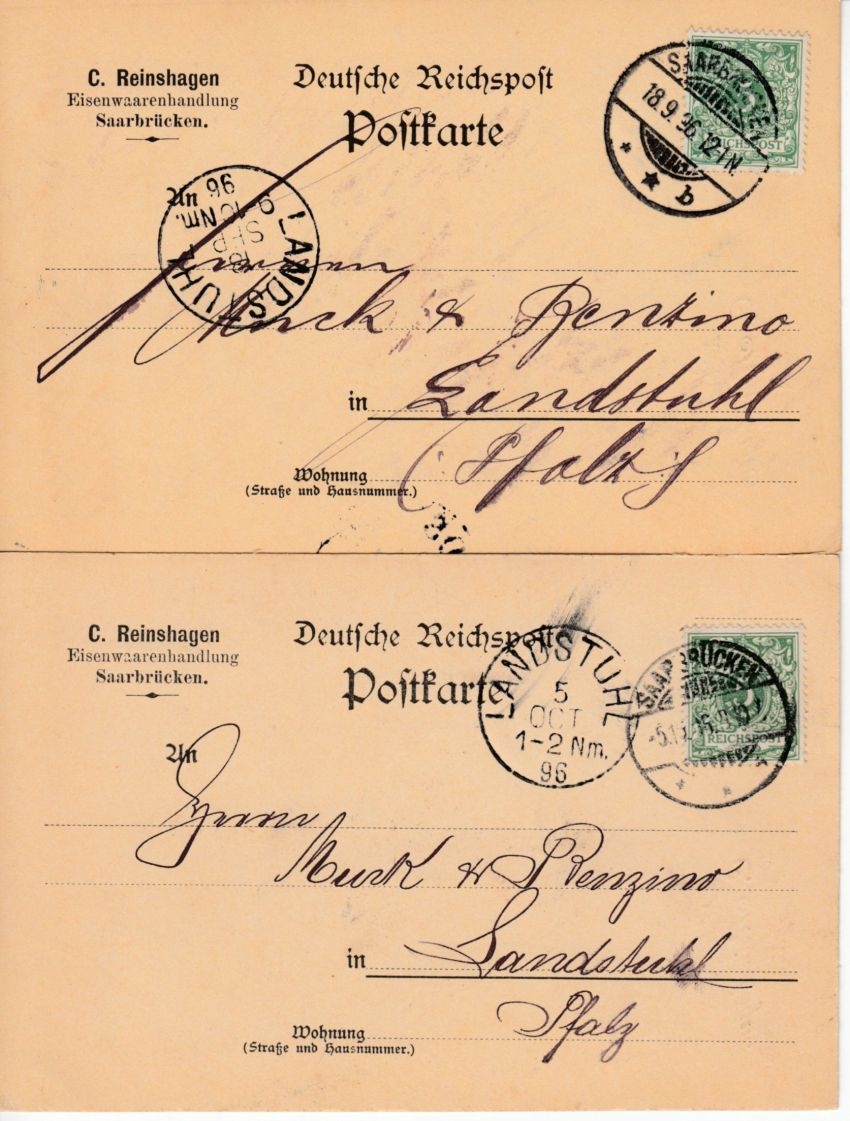 C. Reinshagen
Eisenwaarenhandlung
Saarbrücken.
Deutsche Reichspost
Postkarte
SAARBRÜCKEN
18.9.96 12-1N.
* * b
5
REICHSPOST
An
LANDSTUHL
18
SEP
9-10 Nm.
96
Herren
Murck & Benzino
in Landstuhl
(Pfalz)
Wohnung
(Straße und Hausnummer.)
C. Reinshagen
Eisenwaarenhandlung
Saarbrücken.
Deutsche Reichspost
Postkarte
LANDSTUHL
5
OCT
1-2 Nm.
96
SAARBRÜCKEN
5
REICHSPOST
An
Herrn
Murk & Benzino
in Landstuhl
Pfalz
Wohnung
(Straße und Hausnummer.)